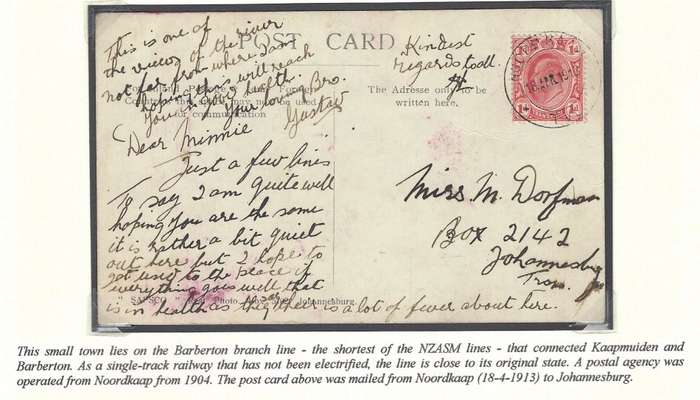 This is one of
the views of the river
not far from where I am
hoping this will reach
you in good health.
Your loving Bro.
Gustav
POST CARD
Kindest
regards to all.
The Adresse only to be
written here.
for communication
Dear Minnie
Just a few lines
To say I am quite well
hoping you are the same
it is rather a bit quiet
out here but I hope to
get used to the place if
everything goes well that
is in health as they say there is a lot of fever about here.
SAPSCO Photo, Johannesburg.
Miss M. Dorfman
Box 2142
Johannesburg
This small town lies on the Barberton branch line - the shortest of the NZASM lines - that connected Kaapmuiden and
Barberton. As a single-track railway that has not been electrified, the line is close to its original state. A postal agency was
operated from Noordkaap from 1904. The post card above was mailed from Noordkaap (18-4-1913) to Johannesburg.